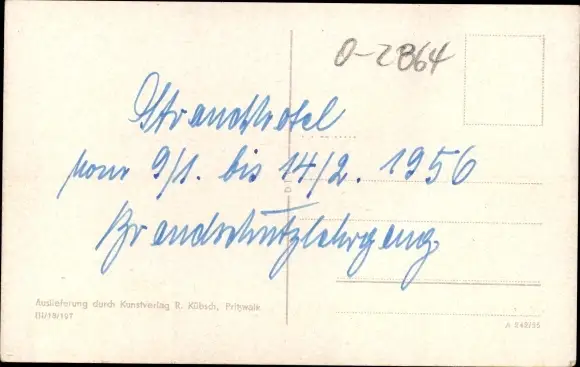 O-2864
Strandhotel
vom 9/1. bis 14/2. 1956
Brandschutzlehrgang.
Auslieferung durch Kunstverlag R. Kübsch, Pritzwalk
III/18/197
A 848/55